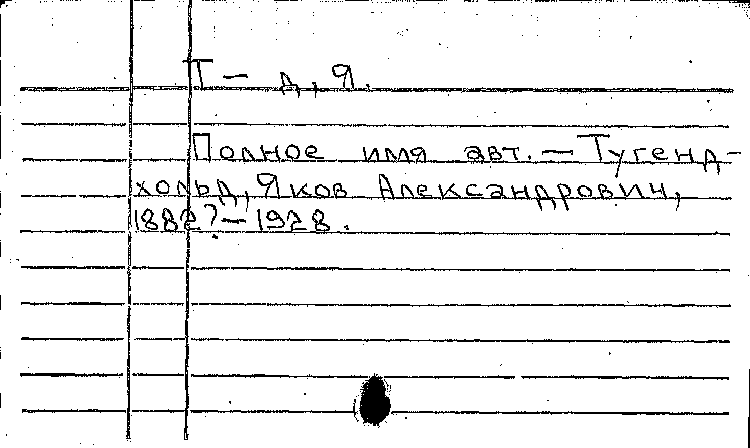 Т — д, Я.
Полное имя авт. — Тугенд-
хольд, Яков Александрович,
1882? — 1928.